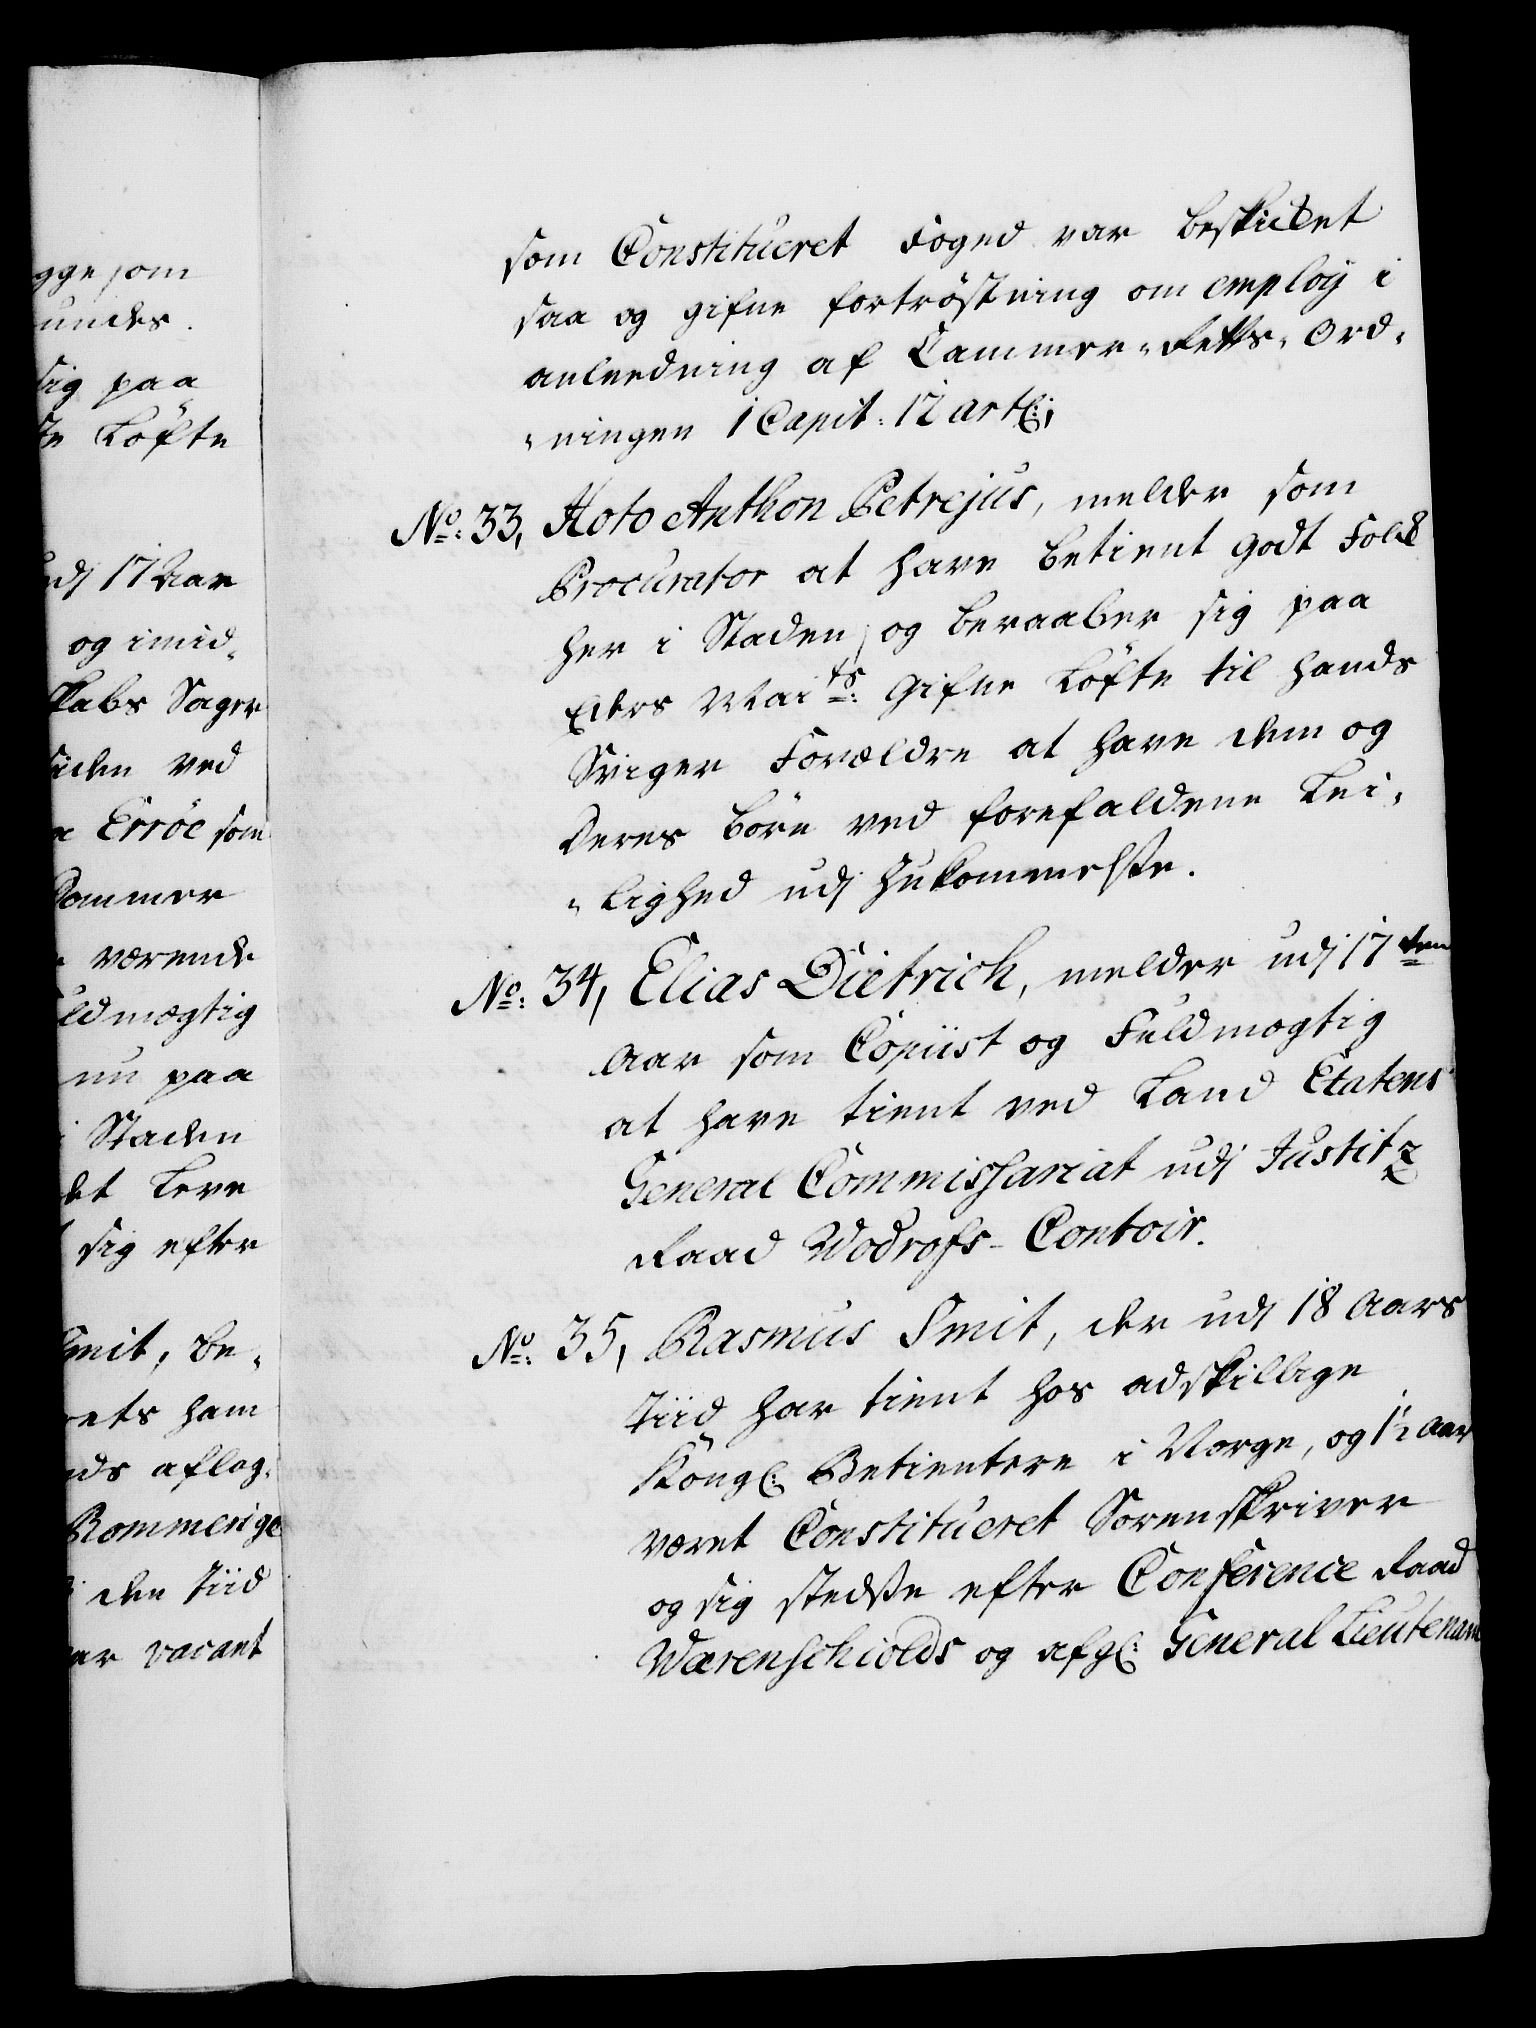 gge som
undes.
sig paa
te Löfte
udj 17 Aar
og imid„
skabs Sager
siden ved
Erröe som
Commer
værende
uldmægtig
nu paa
i Staden
det Leve
sig efter
Smit, be„
rets ham
nds aflag„
Rommerige
den Tiid
var vacant
som Constitueret Foged var beskicket
saa og gifne fortröstning om employ i
anleedning af Cammer„Retts„Ord„
„ningen 1 Capit: 12 artl:,
No: 33, Hoto Anthon Petrejus, melder som
Procurator at have betient godt Folck
her i Staden, og beraaber sig paa
Eders Maits: Gifne Löfte til hands
Sviger Forældre at have dem og
Deres börn ved forefaldene Lei„
„lighed udj Hukommelse.
No: 34, Elias Dietrich, melder udj 17ten
Aar som Copiist og Fuldmægtig
at have tient ved Land Etatens
General Commissariat udj Justitz
Raad Wodrofs-Contoir.
No: 35, Rasmus Smit, der udj 18 Aars
Tiid har tient hos adskillige
Kongl: Betientere i Norge, og 1½ Aar
været Constitueret Sorenskriver
og sig stedse efter Conference Raad
Wærenschiolds og afgl: General Lieutenant